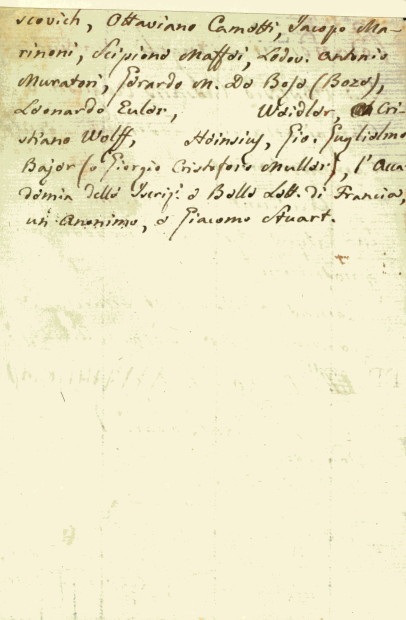 scovich, Ottaviano Cametti, Jacopo Ma-
rinoni, Scipione Maffei, Lodov. Antonio
Muratori, Gerardo M. De Bose (Boze),
Leonardo Euler, Weidler, Cri-
stiano Wolff, Heinsius, Gio. Guglielmo
Bajer (o Giorgio Cristoforo Muller), l'Acca-
demia delle Iscriz. e Belle Lett. di Francia,
un Anonimo, e Giacomo Stuart.